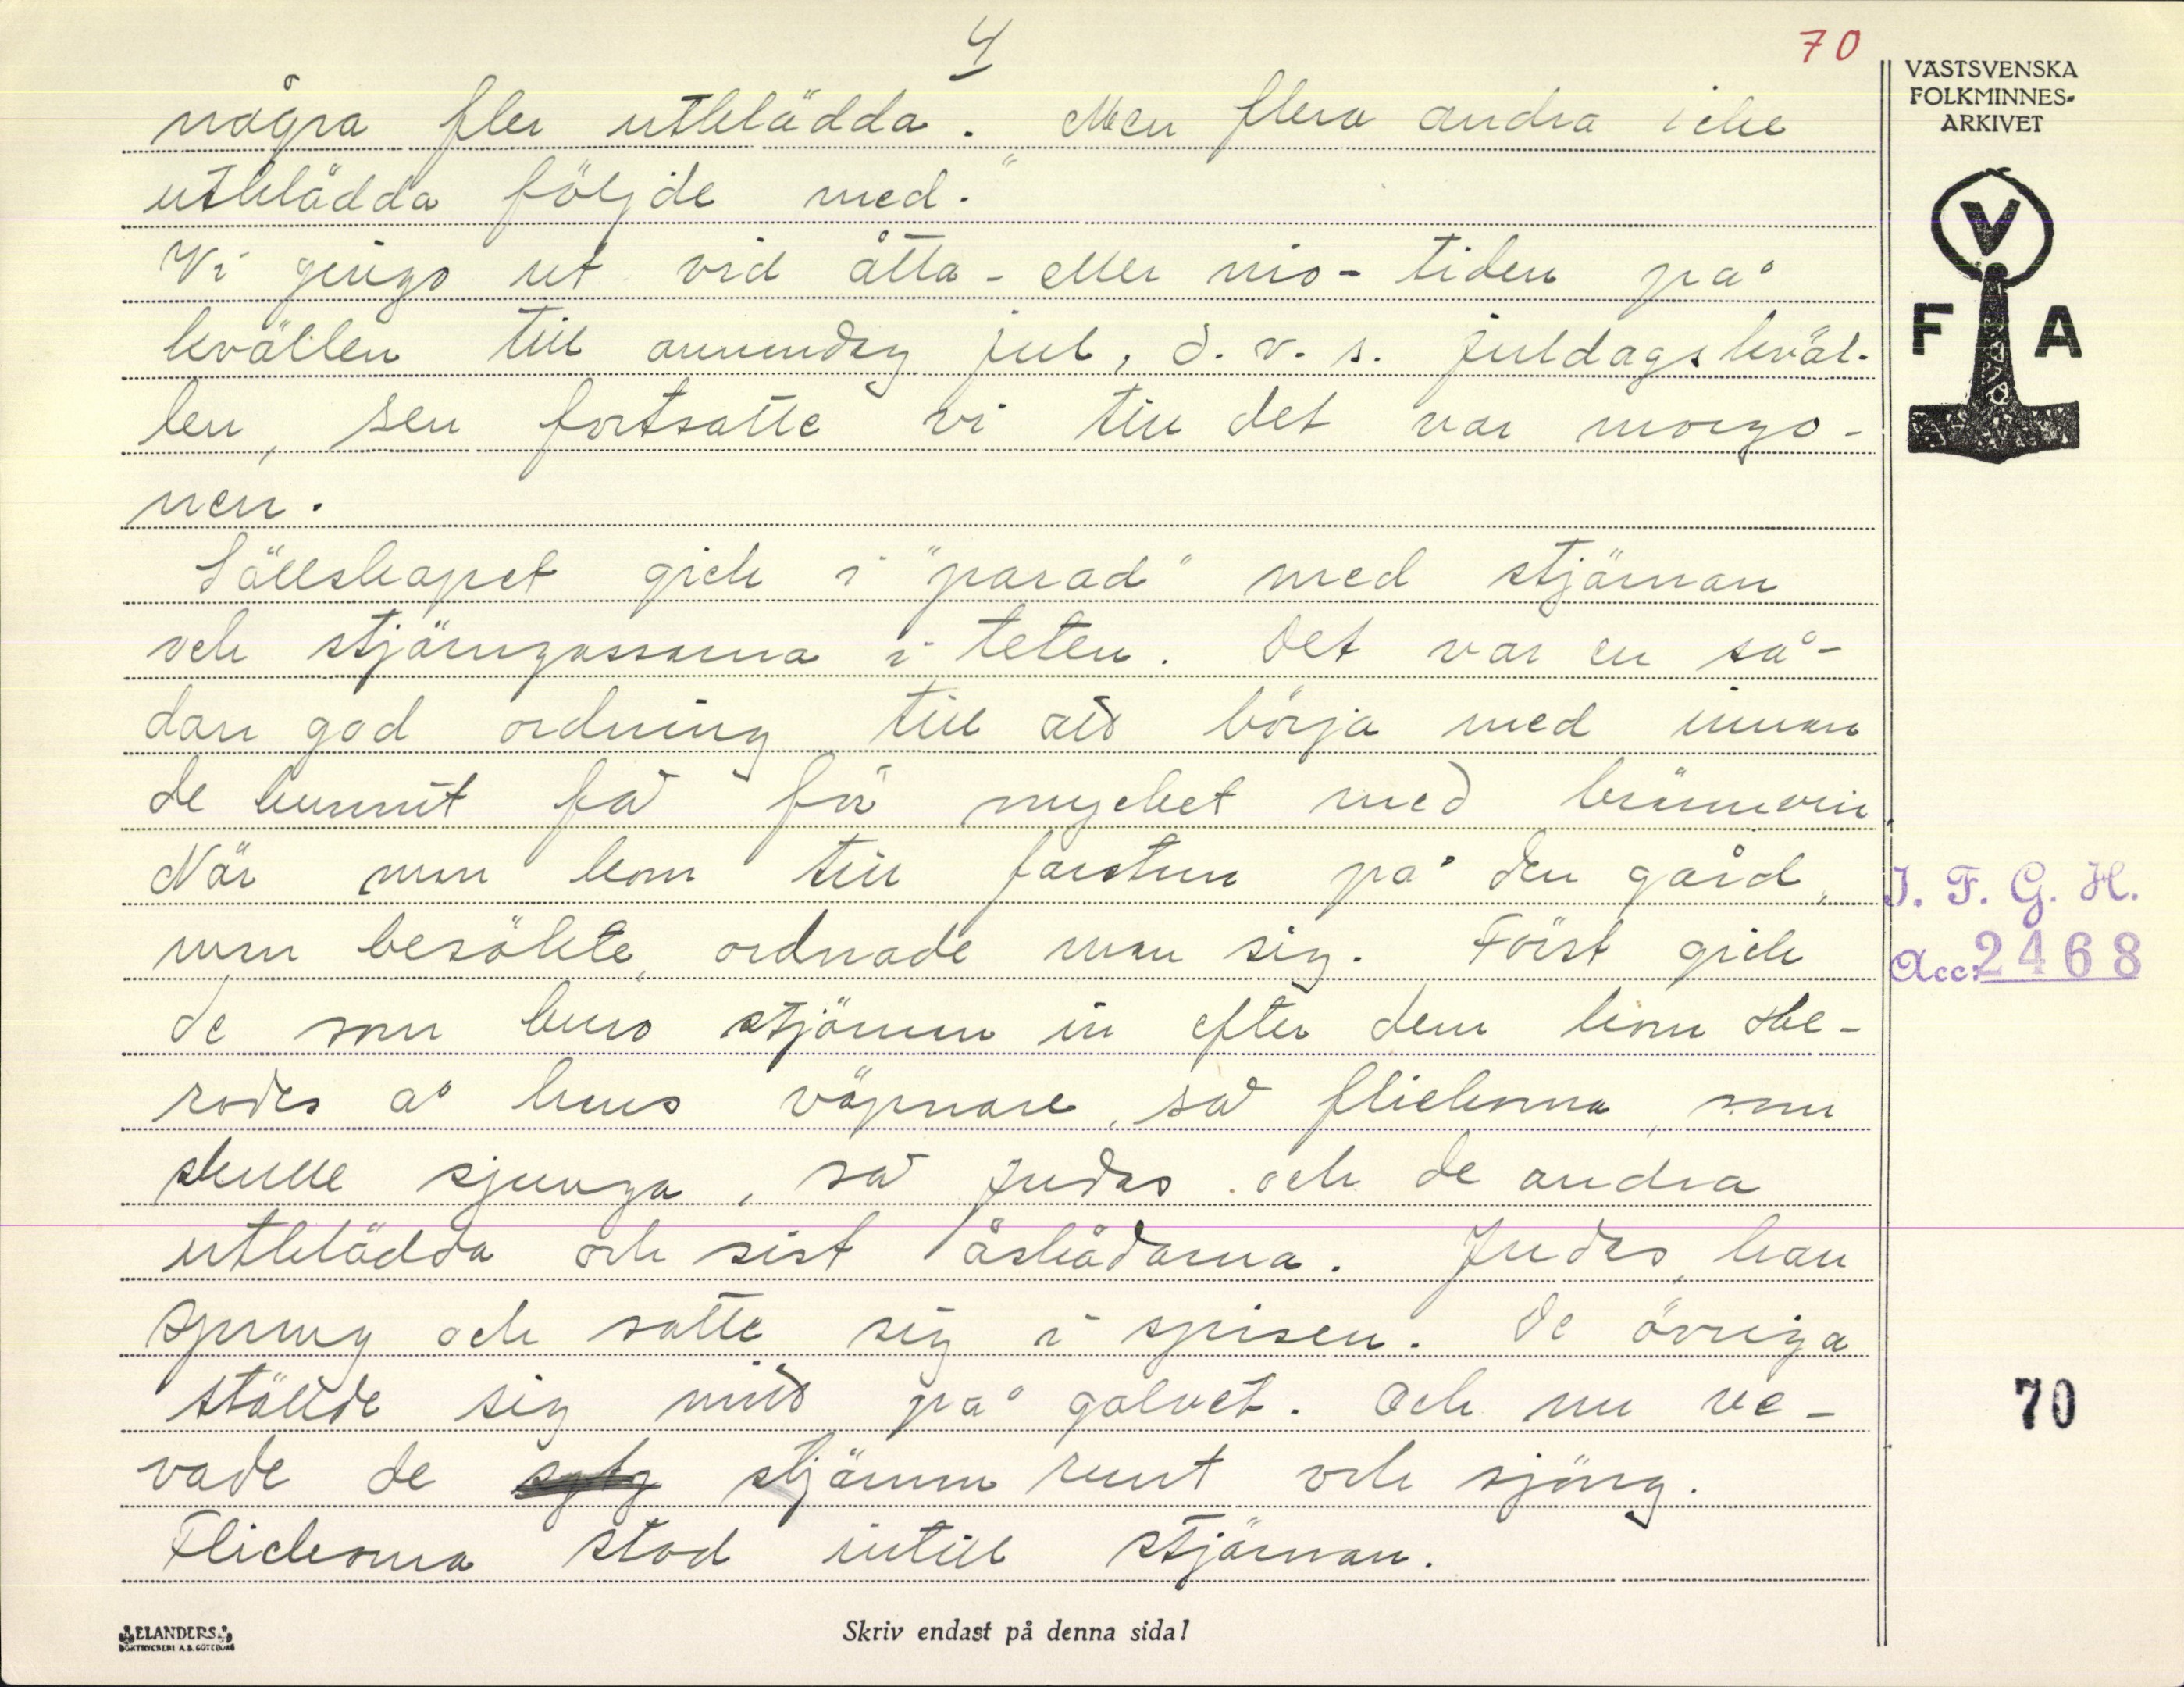 4
70
VÄSTSVENSKA
FOLKMINNES-
ARKIVET
V
F A
några fler utklädda. Men flera andra icke
utklädda följde med."
Vi gingo ut vid åtta- eller nio-tiden på
kvällen till annandag jul, d.v.s. juldagskväl-
len, sen fortsatte vi till det var morgo-
nen.
Sällskapet gick i "parad" med stjärnan
och stjärngossarna i teten. Det var en så-
dan god ordning till att börja med innan
de hunnit få för mycket med brännvin
När man kom till farstun på den gård,
man besökte, ordnade man sig. Först gick
de som buro stjärnan in efter dem kom He-
rodes å hans väpnare, så flickorna, som
skulle sjunga, så Judas och de andra
utklädda och sist åskådarna. Judas, han
sprang och satte sig i spisen. De övriga
ställde sig mitt på golvet. Och nu ve-
vade de stjärnan runt och sjöng.
Flickorna stod intill stjärnan.
I. F. G. H.
Acc: 2468
70
ELANDERS
BOKTRYCKERI A.B. GÖTEBORG
Skriv endast på denna sida!